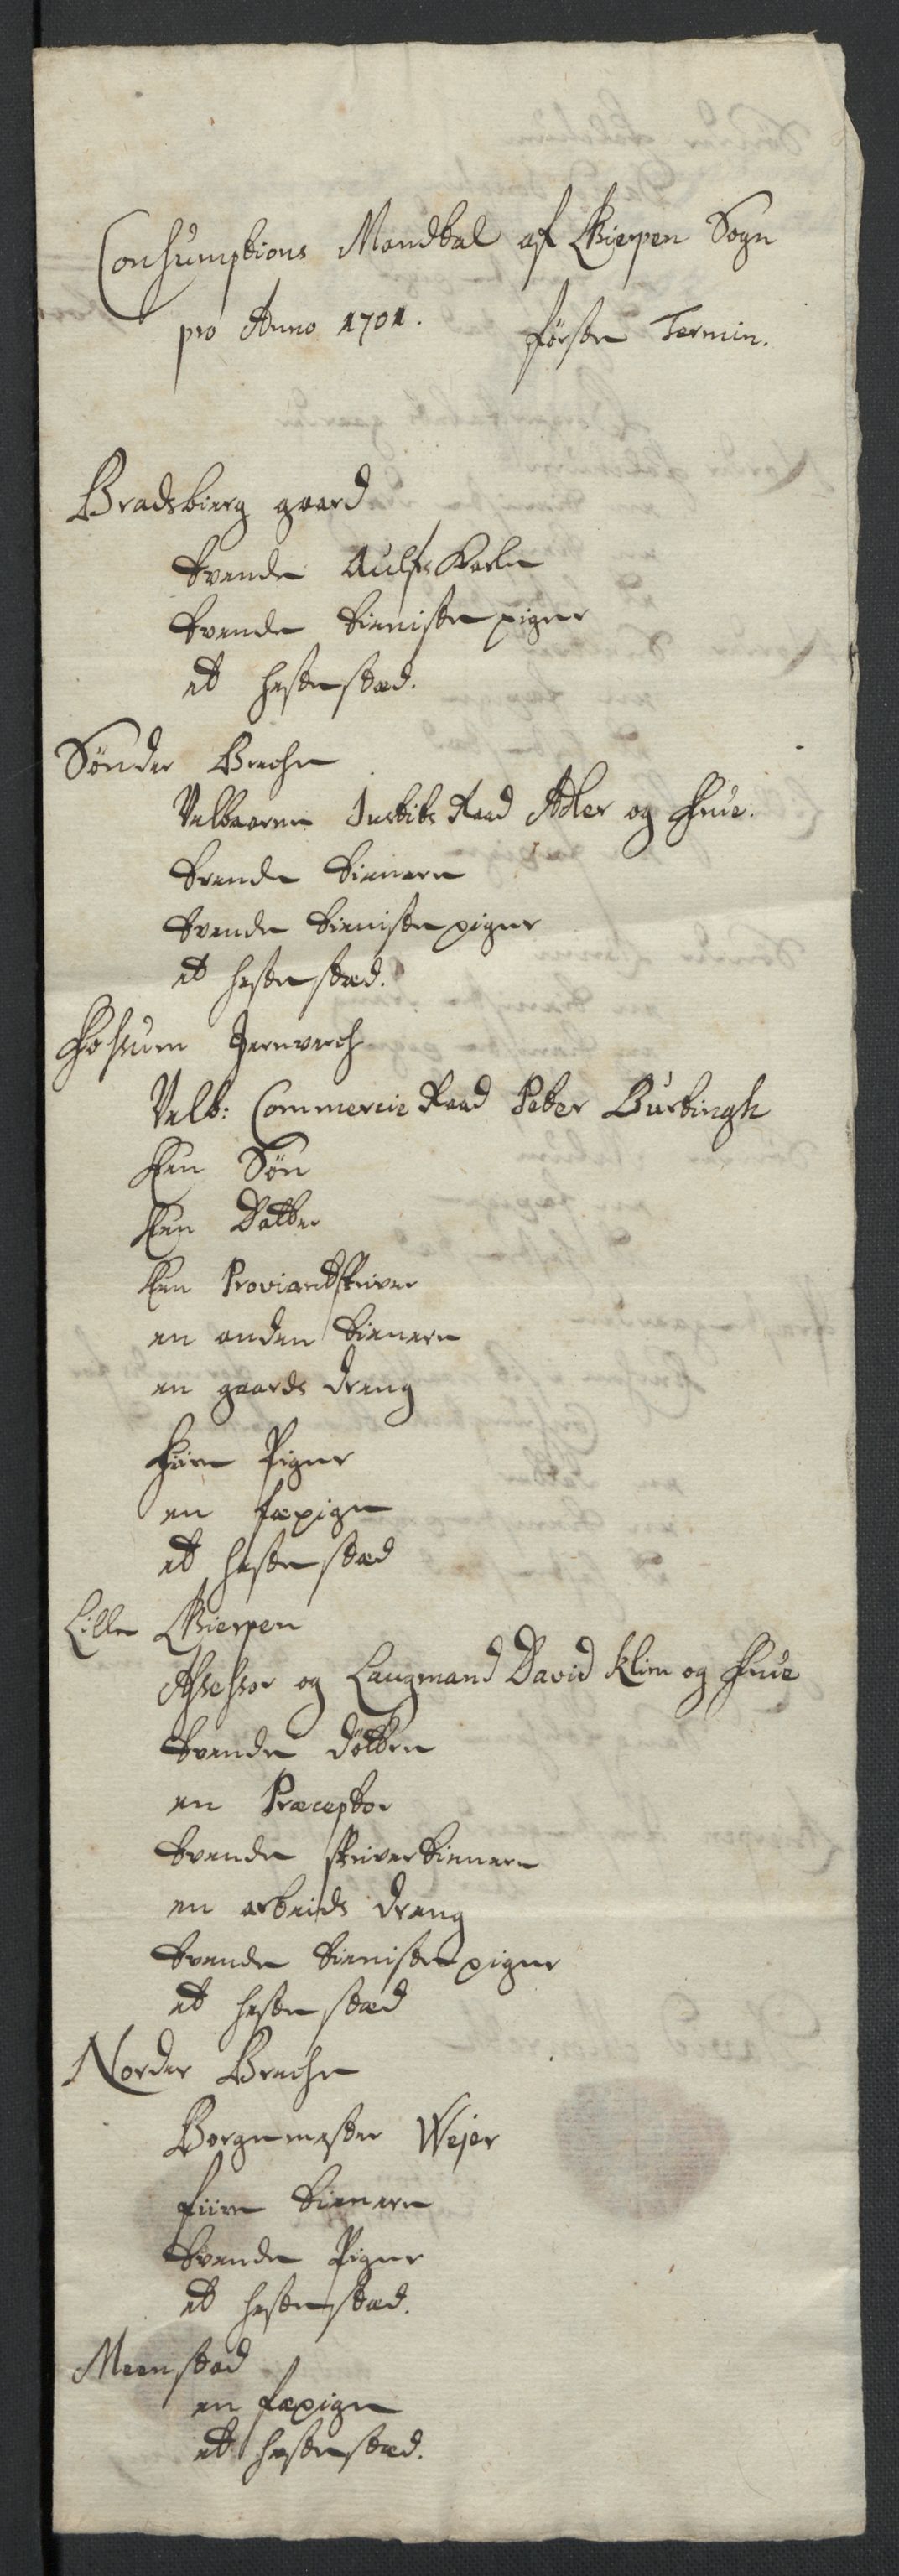 Consumptions Mandtal af Gierpen Sogn
pro Anno 1701. første Termin.
Bradsbierg gaard
tvende Aulfs Karle
tvende tieniste piger
et hestestæd.
Sønder Breche
Velbaarne Justits Raad Adler og Frue.
trende tienere
tvende tieniste piger
et hestestæd.
Fossum Jernverch
Velb: Commercie Raad Peter Børtingh
Een Søn
Een Datter
Een Proviantskriver
en anden tienere
en gaards dreng
fiire Piger
en fæpige
et hestestæd
Lille Gierpen
Assessor og Laugmand David Klim og Frue
tvende døttre
en Præceptor
tvende skriver tienere
en arbeids dreng
tvende tieniste piger
et hestestæd
Norder Breche
Borgemester Wejer
fiire tienere
tvende Piger
et hestestæd.
Meenstad
en fæpige
et hestestæd.